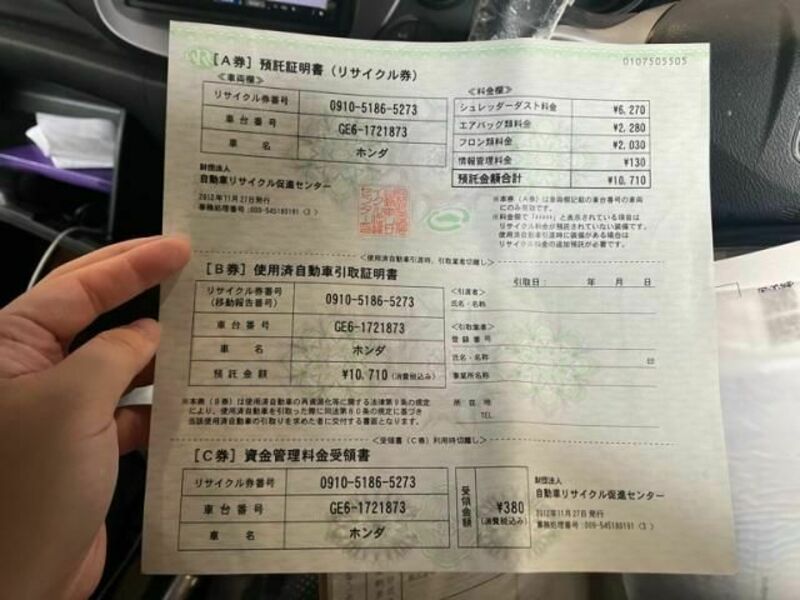 0107505505
[A券] 預託証明書(リサイクル券)
<車両欄>
リサイクル券番号 0910-5186-5273
車台番号 GE6-1721873
車名 ホンダ
<料金欄>
シュレッダーダスト料金 ¥6,270
エアバッグ類料金 ¥2,280
フロン類料金 ¥2,030
情報管理料金 ¥130
預託金額合計 ¥10,710
財団法人
自動車リサイクル促進センター
2012年11月27日発行
事務処理番号:009-545180191 〈3〉
※本券(A券)は車両欄記載の車台番号の車両
にのみ有効です。
※料金欄で「****」と表示されている項目は
リサイクル料金が預託されていない装備です。
使用済自動車引渡時に装備がある場合は
リサイクル料金の追加預託が必要です。
<使用済自動車引渡時、引取業者切離し>
[B券] 使用済自動車引取証明書
リサイクル券番号
(移動報告番号) 0910-5186-5273
車台番号 GE6-1721873
車名 ホンダ
預託金額 ¥10,710(消費税込み)
引取日: 年 月 日
<引渡者>
氏名・名称
<引取業者>
登録番号
氏名・名称 印
事業所名称
所在地
TEL
※本券(B券)は使用済自動車の再資源化等に関する法律第9条の規定
により、使用済自動車を引取った際に同法第80条の規定に基づき
当該使用済自動車の引取りを求めた者に交付する書面となります。
<受領書(C券)利用時切離し>
[C券] 資金管理料金受領書
リサイクル券番号 0910-5186-5273
車台番号 GE6-1721873
車名 ホンダ
受領金額 ¥380
(消費税込み)
財団法人
自動車リサイクル促進センター
2012年11月27日発行
事務処理番号:009-545180191 〈3〉